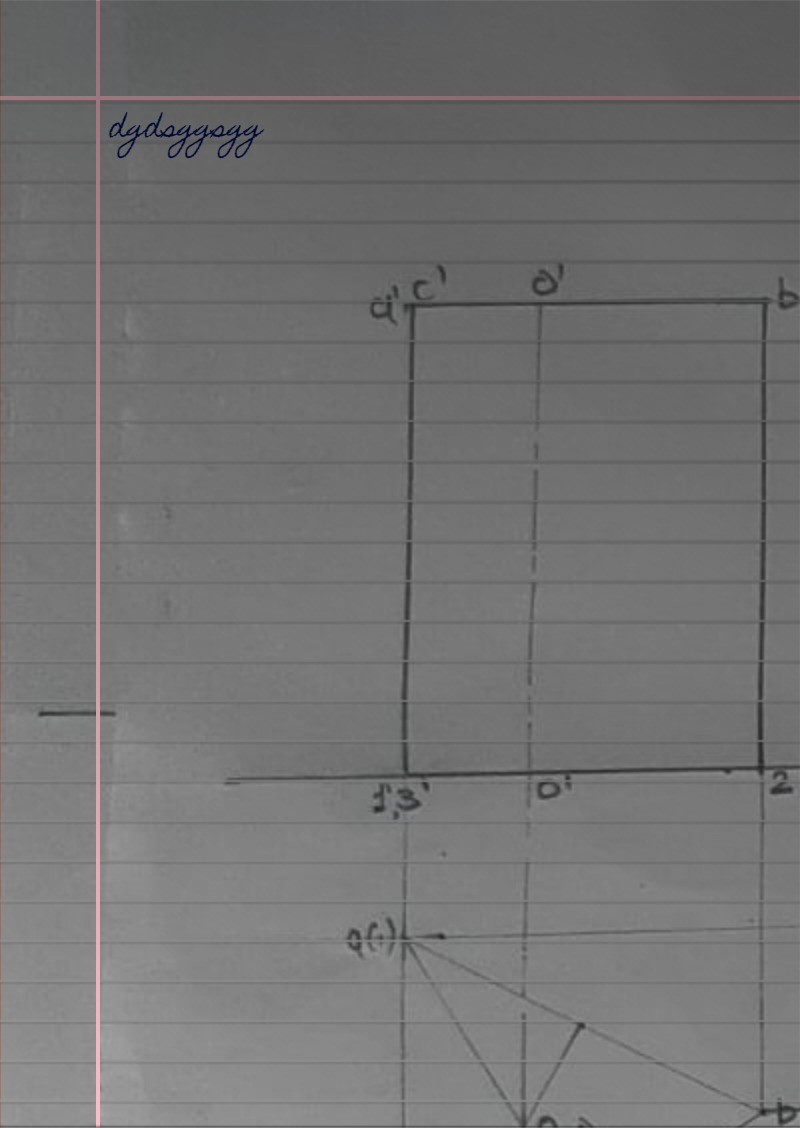 dgdsggsgg
a' c' o' b
1',3' o' 2
a(1)
b